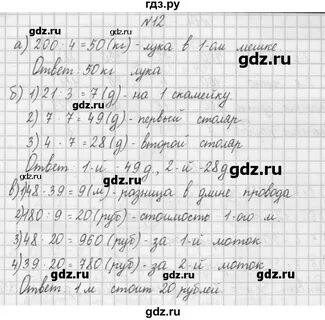 гдз.ру
№12
а) 200 : 4 = 50 (кг) - лука в 1-ом мешке
Ответ: 50 кг лука
б) 1) 21 : 3 = 7 (д) - на 1 скамейку
2) 7 · 7 = 49 (д) - первый столяр
3) 4 · 7 = 28 (д) - второй столяр
Ответ: 1-й - 49 д, 2-й - 28 д
в) 1) 48 - 39 = 9 (м) - разница в длине провода
2) 180 : 9 = 20 (руб) - стоимость 1-ого м
3) 48 · 20 = 960 (руб) - за 1-й моток
4) 39 · 20 = 780 (руб) - за 2-й моток
Ответ: 1 м стоит 20 рублей
gdz.ru